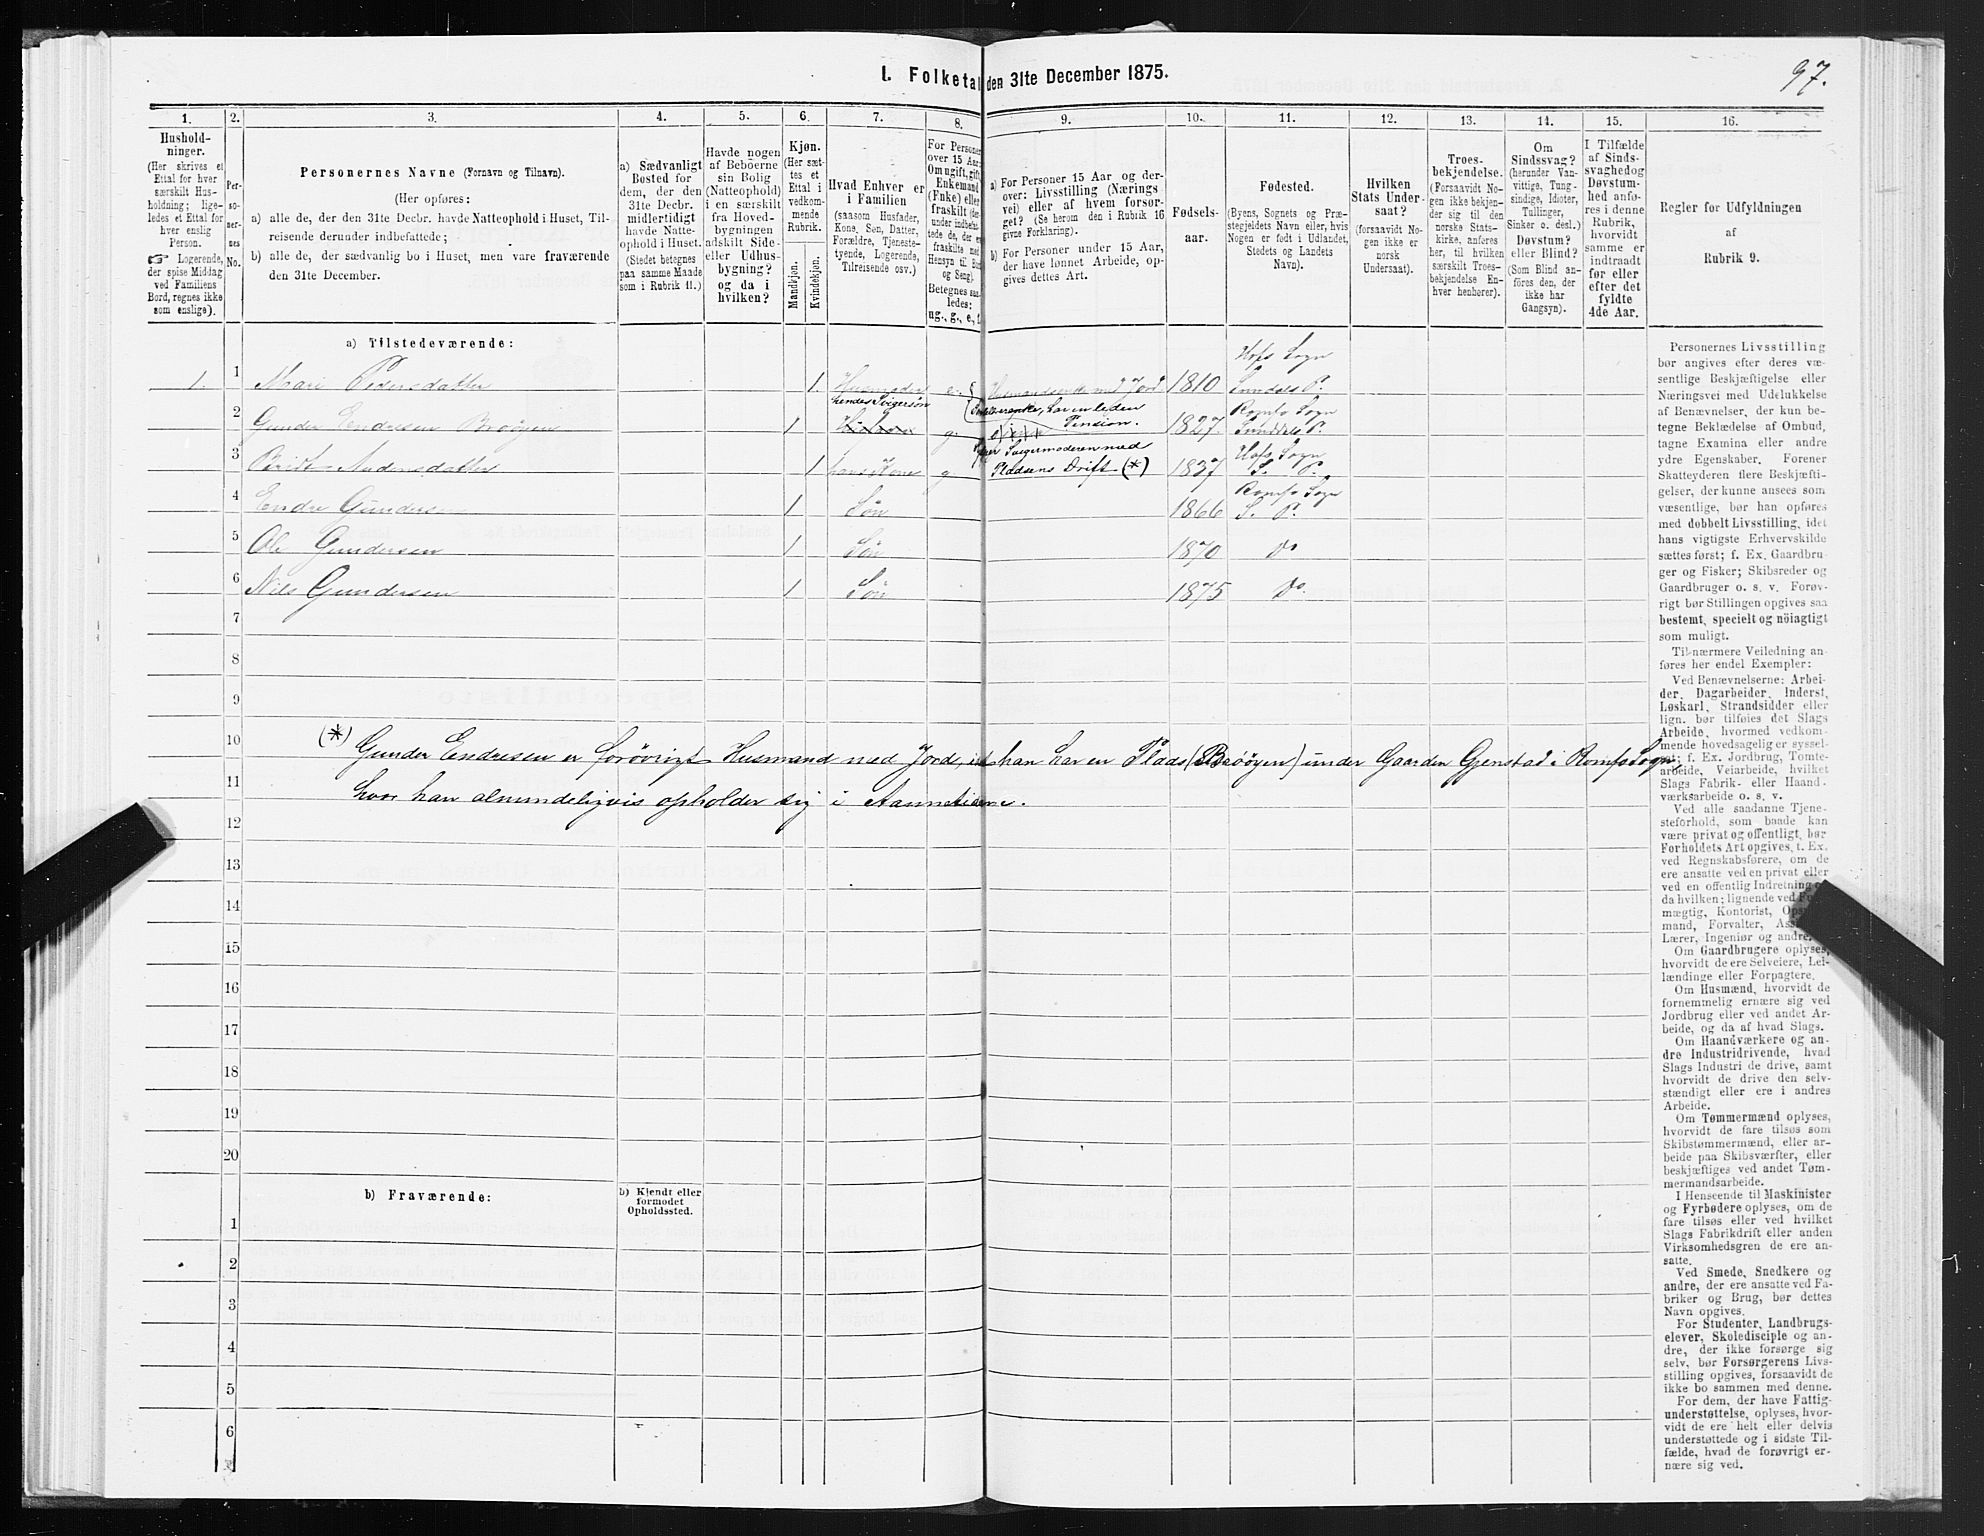 I. Folketal den 31te December 1875.
97.
1.
Hushold-
ninger.
(Her skrives et
Ettal for hver
særskilt Hus-
holdning; lige-
ledes et Ettal for
hver enslig
Person.
☞ Logerende,
der spise Middag
ved Familiens
Bord, regnes ikke
som enslige).
2.
Per-
so-
ner-
nes
No.
3.
Personernes Navne (Fornavn og Tilnavn).
(Her opføres:
a) alle de, der den 31te Decbr. havde Natteophold i Huset, Til-
reisende derunder indbefattede;
b) alle de, der sædvanlig bo i Huset, men vare fraværende
den 31te December.
4.
a) Sædvanligt
Bosted for
dem, der den
31te Decbr.
midlertidigt
havde Natte-
ophold i Huset.
(Stedet betegnes
paa samme Maade
som i Rubrik 11.)
5.
Havde nogen
af Beboerne
sin Bolig
(Natteophold)
i en særskilt
fra Hoved-
bygningen
adskilt Side-
eller Udhus-
bygning?
og da i
hvilken?
6.
Kjøn.
(Her sæt-
tes et
Ettal i
vedkom-
mende
Rubrik.
Mandkjøn.
Kvindekjøn.
7.
Hvad Enhver er
i Familien
(saasom Husfader,
Kone, Søn, Datter,
Forældre, Tjeneste-
tyende, Logerende,
Tilreisende osv.)
8.
For Personer
over 15 Aar:
Om ugift, gift,
Enkemand
(Enke) eller
fraskilt
Betegnes saa-
ledes:
ug., g., e., f.
9.
a) For Personer 15 Aar og der-
over: Livsstilling (Nærings
vei) eller af hvem forsør-
get? (Se herom den i Rubrik 16
givne Forklaring).
b) For Personer under 15 Aar,
der have lønnet Arbeide, op-
gives dettes Art.
10.
Fødsels-
aar.
11.
Fødested.
(Byens, Sognets og Præ-
stegjeldets Navn eller, hvis
Nogen er født i Udlandet,
Stedets og Landets
Navn).
12.
Hvilken
Stats Under-
saat?
(forsaavidt No-
gen ikke er
norsk
Undersaat).
13.
Troes-
bekjendelse.
(Forsaavidt No-
gen ikke bekjen-
der sig til den
norske Stats-
kirke, anføres
her, til hvilken
særskilt Troes-
bekjendelse En-
hver henhører).
14.
Om
Sindssvag?
(herunder Van-
vittige, Tung-
sindige, Idioter,
Tullinger,
Sinker o. desl.)
Døvstum?
eller Blind?
(Som Blind an-
føres den, der
ikke har
Gangsyn).
15.
I Tilfælde
af Sinds-
svaghed og
Døvstum-
hed anfø-
res i denne
Rubrik,
hvorvidt
samme er
indtraadt
før eller
efter det
fyldte
4de Aar.
16.
Regler for Udfyldningen
af
Rubrik 9.
a) Tilstedeværende:
Hofs Sogn
1. 1 Mari Pedersdatter 1. e. Husmandsenke med Jord 1810 Sundals P.
hendes Svigersøn
Romfo Sogn
2 Gunder Endresen Brøøgen 1 g. Pension. 1827. Sundals P.
Svigermoderen med
Hofs Sogn
3 Brit Andersdatter 1 hans Kone g. Pladsens Drift (*) 1837 S. P.
Romfo Sogn
4 Endre Gundersen 1 Søn 1866 S. P.
5 Ole Gundersen 1 Søn 1870 Do
6 Nils Gundersen 1 Søn 1875 Do.
7
8
9
10 (*) Gunder Endresen er forøvrigt Husmand med Jord, idet han har en Plads (Brøøgen) under Gaarden Gjenstad i Romfo Sogn,
11 hvor han almindeligvis opholder sig i Aannetiderne.
12
13
14
15
16
17
18
19
20
b) Fraværende:
b) Kjendt eller
formodet
Opholdssted.
1
2
3
4
5
6
Personernes Livsstilling
bør angives efter deres væ-
sentlige Beskjæftigelse eller
Næringsvei med Udelukkelse
af Benævnelser, der kun be-
tegne Beklædelse af Ombud,
tagne Examina eller andre
ydre Egenskaber. Forener
Skatteyderen flere Beskjæfti-
gelser, der kunne ansees som
væsentlige, bør han opføres
med dobbelt Livsstilling, idet
hans vigtigste Erhvervskilde
sættes først; f. Ex. Gaardbru-
ger og Fisker; Skibsreder og
Gaardbruger o. s. v. Forøv-
rigt bør Stillingen opgives saa
bestemt, specielt og nöiagtigt
som muligt.
Til nærmere Veiledning an-
føres her endel Exempler:
Ved Benævnelserne: Arbei-
der, Dagarbeider, Inderst,
Løskarl, Strandsidder eller
lign. bør tilføies det Slags
Arbeide, hvormed vedkom-
mende hovedsagelig er syssel-
sat; f. Ex. Jordbrug, Tomte-
arbeide, Veiarbeide, hvilket
Slags Fabrik- eller Haand-
værksarbeide o. s. v.
Ved alle saadanne Tjene-
steforhold, som baade kan
være privat og offentligt, bør
Forholdets Art opgives, t. Ex.
ved Regnskabsførere, om de
ere ansatte ved en privat eller
ved en offentlig Indretning og
da hvilken; lignende ved
mægtig, Kontorist,
mand, Forvalter,
Lærer, Ingeniør og andre.
Om Gaardbrugere oplyses,
hvorvidt de ere Selveiere, Lei-
lændinge eller Forpagtere.
Om Husmænd, hvorvidt de
fornemmelig ernære sig ved
Jordbrug eller ved andet Ar-
beide, og da af hvad Slags.
Om Haandværkere og an-
dre Industridrivende, hvad
Slags Industri de drive, samt
hvorvidt de drive den selv-
stændigt eller ere i andres
Arbeide.
Om Tømmermænd oplyses,
hvorvidt de fare tilsøs som
Skibstømmermænd, eller ar-
beide paa Skibsværfter, eller
beskjæftiges ved andet Tøm-
mermandsarbeide.
I Henseende til Maskinister
og Fyrbødere oplyses, om de
fare tilsøs eller ved hvilket
Slags Fabrikdrift eller anden
Virksomhedsgren de ere an-
satte.
Ved Smede, Snedkere og
andre, der ere ansatte ved Fa-
briker og Brug, bør dettes
Navn opgives.
For Studenter, Landbrugs-
elever, Skoledisciple og an-
dre, der ikke forsørge sig
selv, bør Forsørgerens Livs-
stilling opgives, forsaavidt de
ikke bo sammen med denne.
For dem, der have Fattig-
understøttelse, oplyses, hvor-
vidt de ere helt eller delvis
understøttede og i sidste Til-
fælde, hvad de forøvrigt er-
nære sig ved.